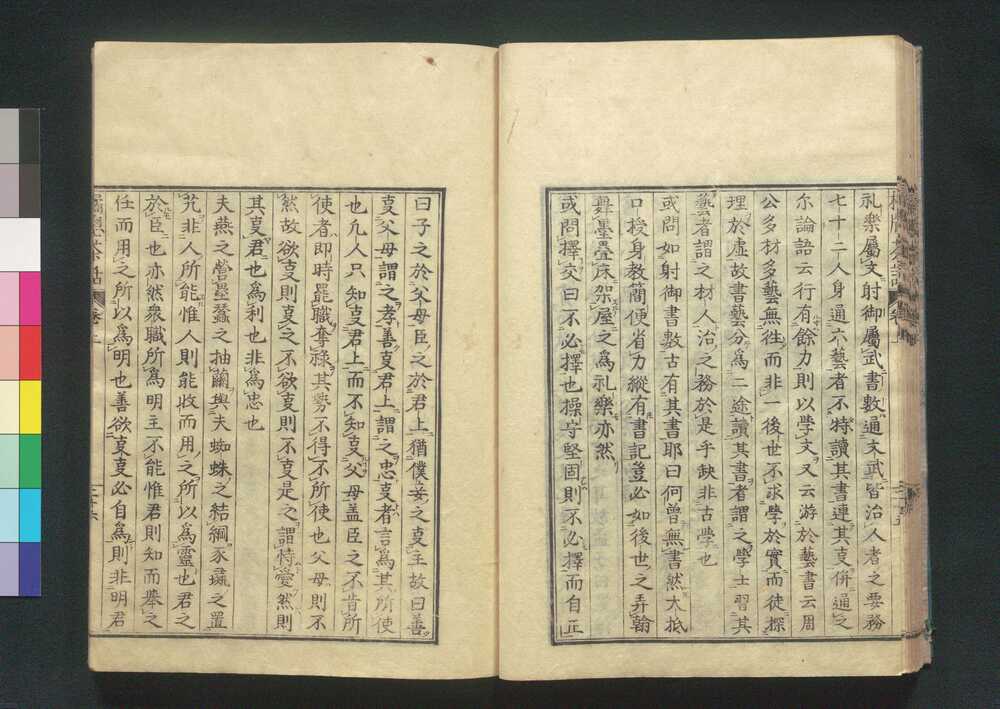 礼樂屬文射御屬武書數通文武皆治人者之要務
七十二人身通六藝者不特讀其書連其叓併通之
尓論語云行有餘力則以學文又云游於藝書云周
公多材多藝無徃而非一後世不求學於實而徒探
理於虛故書藝分爲二途讀其書者謂之學士習其
藝者謂之材人治之務於是乎缺非古學也
或問如射御書數古有其書耶曰何曾無書然大抵
口授身教簡便省力縱有書記豈必如後世之弄翰
舞墨疊床架屋之爲礼樂亦然
或問擇交曰不必擇也操守堅固則不必擇而自正
曰子之於父母臣之於君上猶僕妾之叓主故曰善
叓父母謂之孝善叓君上謂之忠叓者言爲其所使
也凢人只知叓君上而不知叓父母盖臣之不肯所
使者即時罷職奪祿其勢不得不所使也父母則不
然故欲叓則叓之不欲叓則不叓是之謂恃愛然則
其叓君也爲利也非爲忠也
夫燕之營壘蠶之抽繭與夫蜘蛛之結網豕
之置
於非人所能惟人則能收而用之所以爲靈也君之
於臣也亦然衆職所爲明主不能惟君則知而擧之
任而用之所以爲明也善欲叓叓必自爲則非明君